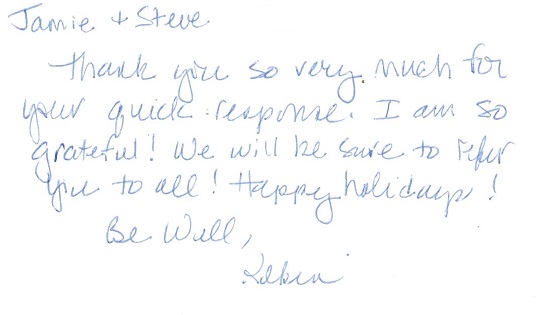 Jamie + Steve
Thank you so very much for
your quick response. I am so
grateful! We will be sure to refer
you to all! Happy holidays!
Be Well,
Robin